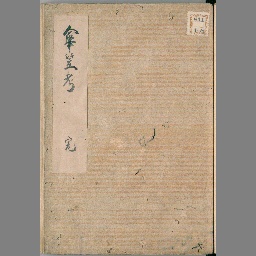 傘笠考 完